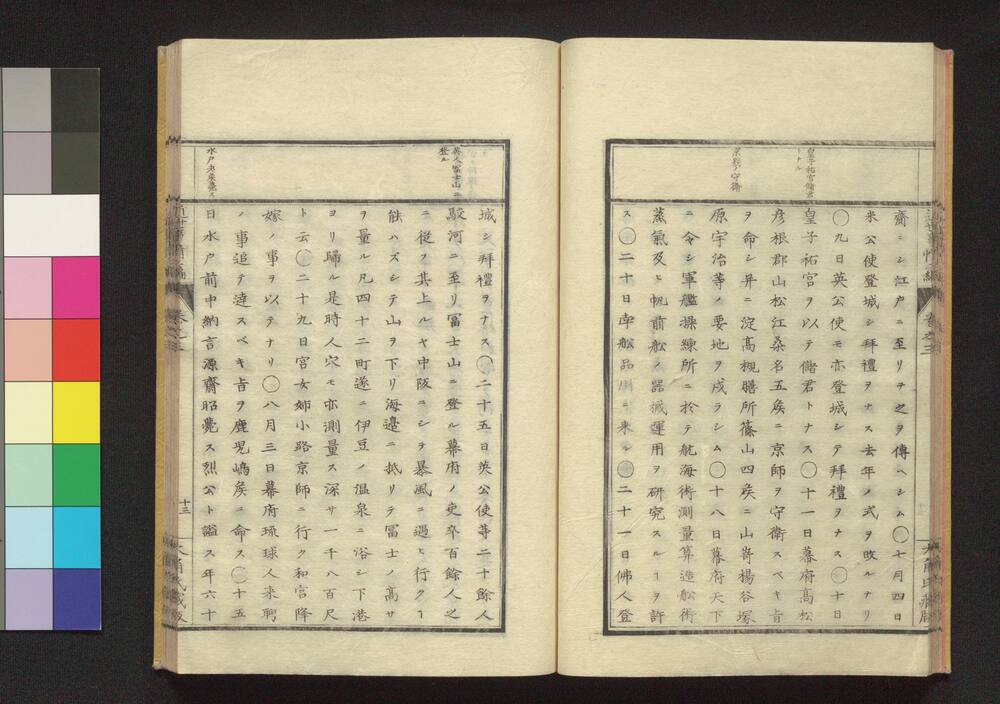 皇子祐宮儲君
トナル
京師ノ守衛
齎ニシ江戸ニ至リテ之ヲ傳ヘシム〇七月四日
米公使登城シ拜禮ヲナス去年ノ式ヲ改ルナリ
〇九日英公使モ亦登城シテ拜禮ヲナス〇十日
皇子祐宮ヲ以テ儲君トナス〇十一日幕府高松
彦根郡山松江桑名五矦ニ京師ヲ守衛スヘキ旨
ヲ命シ并ニ淀高槻膳所篠山四矦ニ山嵜楊谷塚
原宇治等ノ要地ヲ戍ラシム〇十八日幕府天下
ニ令シ軍艦操練所ニ於テ航海術測量算造舩術
蒸氣及ヒ帆前舩ノ器械運用ヲ研究スルヿヲ許
ス〇二十日孛舩品川ニ来ル〇二十一日佛人登
近世事情二編
卷之三
英人冨士山ニ
登ル
水戸老矦薨ス
城シ拜禮ヲナス〇二十五日英公使等二十餘人
駿河ニ至リ冨士山ニ登ル幕府ノ吏卒百餘人之
ニ從フ其上ルヤ中阪ニシテ暴風ニ遇ヒ行クヿ
能ハズシテ山ヲ下リ海邉ニ抵リテ冨士ノ高サ
ヲ量ル凡四十二町遂ニ伊豆ノ温泉ニ浴シ下港
ヨリ歸ル是時人穴モ亦測量ス深サ一千八百尺
ト云〇二十九日宮女姉小路京師ニ行ク和宮降
嫁ノ事ヲ以テナリ〇八月三日幕府琉球人来聘
ノ事追テ達スベキ旨ヲ鹿児嶋矦ニ命ス〇十五
日水戸前中納言源齊昭薨ス烈公ト謚ス年六十
卷之三
十三